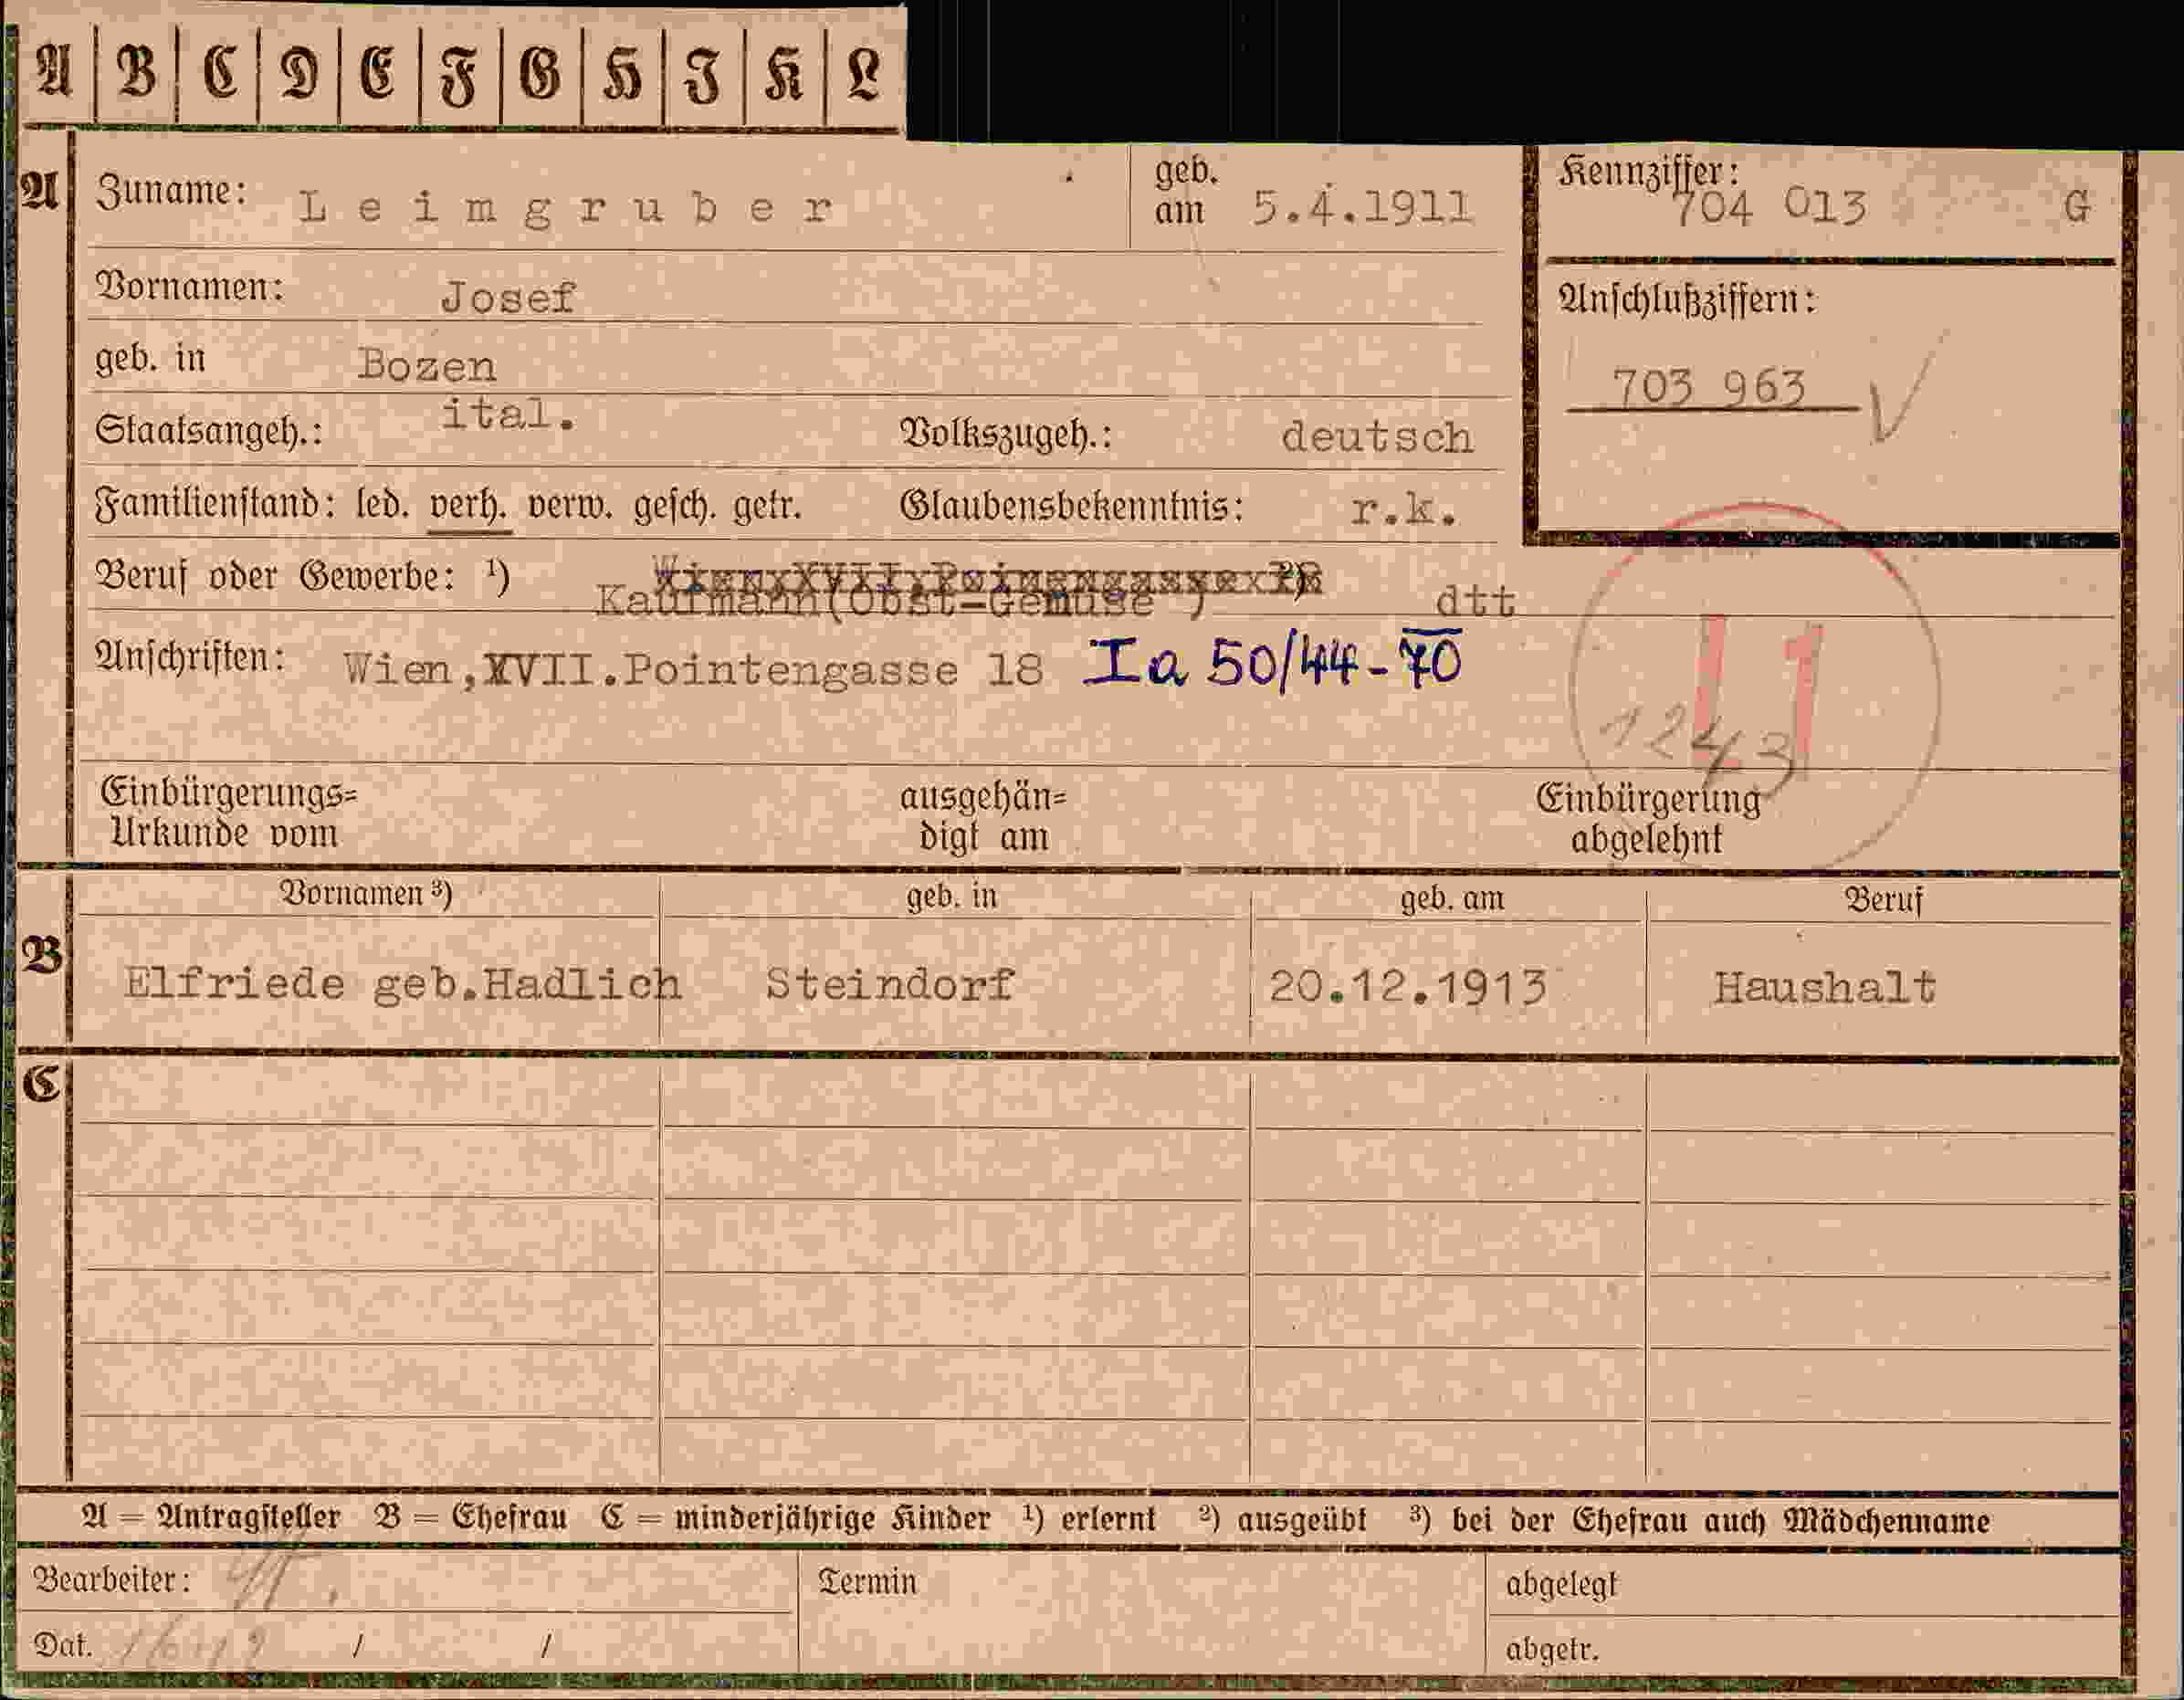 A B C D E F G H J K L
A Zuname: Leimgruber geb. am 5.4.1911 Kennziffer: 704 013 G
Vornamen: Josef Anschlußziffern:
geb. in Bozen 703 963
Staatsangeh.: ital. Volkszugeh.: deutsch
Familienstand: led. verh. verw. gesch. getr. Glaubensbekenntnis: r.k.
Beruf oder Gewerbe: ¹) Kaufmann(Obst-Gemüse ) ²) dtt
Anschriften: Wien,XVII.Pointengasse 18 Ia 50/44-70
1243
Einbürgerungs= ausgehän= Einbürgerung
Urkunde vom digt am abgelehnt
Vornamen ³) geb. in geb. am Beruf
B Elfriede geb.Hadlich Steindorf 20.12.1913 Haushalt
C
A = Antragsteller B = Ehefrau C = minderjährige Kinder ¹) erlernt ²) ausgeübt ³) bei der Ehefrau auch Mädchenname
Bearbeiter: Termin abgelegt
Dat. / / abgetr.